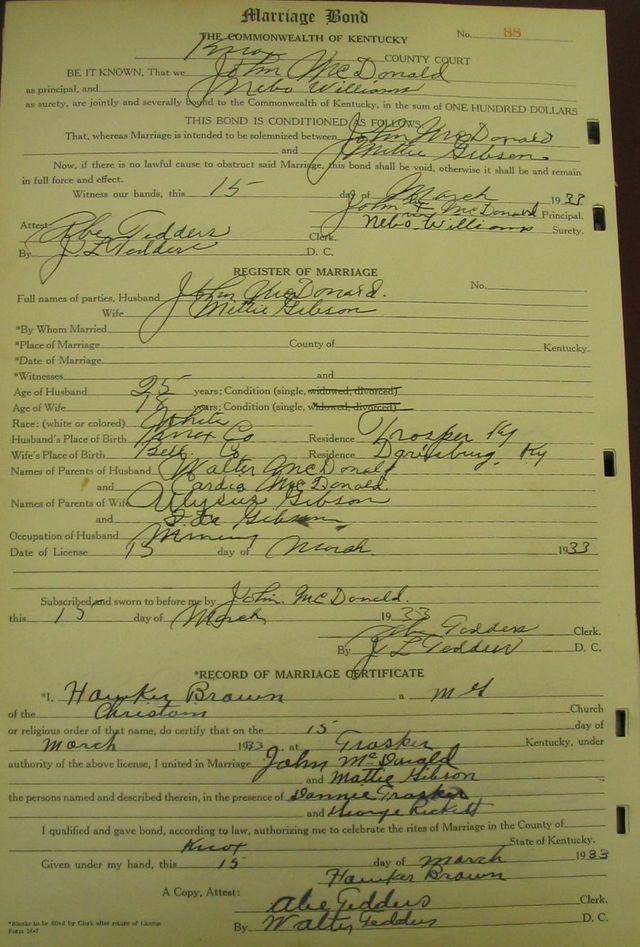 Marriage Bond
THE COMMONWEALTH OF KENTUCKY No. 88
Knox COUNTY COURT
BE IT KNOWN, That we John McDonald
as principal, and Nebo Williams
as surety, are jointly and severally bound to the Commonwealth of Kentucky, in the sum of ONE HUNDRED DOLLARS
THIS BOND IS CONDITIONED AS FOLLOWS
That, whereas Marriage is intended to be solemnized between John McDonald
and Mittie Gibson.
Now, if there is no lawful cause to obstruct said Marriage, this bond shall be void, otherwise it shall be and remain
in full force and effect.
Witness our hands, this 15 day of March 1933
John McDonald Principal.
Nebo Williams Surety.
Attest Abe Tedders Clerk.
By J L Tedders D. C.
REGISTER OF MARRIAGE
Full names of parties, Husband John McDonard. No.
Wife Mittie Gibson
*By Whom Married
*Place of Marriage County of Kentucky.
*Date of Marriage
*Witnesses and
Age of Husband 25 years; Condition (single, widowed, divorced)
Age of Wife 18 years; Condition (single, widowed, divorced)
Race: (white or colored) White
Husband's Place of Birth Knox Co Residence Trosper Ky
Wife's Place of Birth Bell Co Residence Ky
Names of Parents of Husband Walter McDonald
and McDonald.
Names of Parents of Wife Gibson
and Gibson
Occupation of Husband Mining
Date of License 15 day of March 1933
Subscribed and sworn to before me by John McDonald.
this 15 day of March 1933
Abe Tedders Clerk.
By J L Tedders D. C.
*RECORD OF MARRIAGE CERTIFICATE
*I, Hawker Brown a M G
of the Christain Church
or religious order of that name, do certify that on the 15 day of
March 1933, at Trosper Kentucky, under
authority of the above license, I united in Marriage John McDonald
and Mattie Gibson
the persons named and described therein, in the presence of Dannie Trosper
and George Rickett
I qualified and gave bond, according to law, authorizing me to celebrate the rites of Marriage in the County of
Knox State of Kentucky.
Given under my hand, this 15 day of March 1933
Hawker Brown
A Copy, Attest: Abe Tedders Clerk.
By Walter Tedders D. C.
*Blanks to be filled by Clerk after return of License